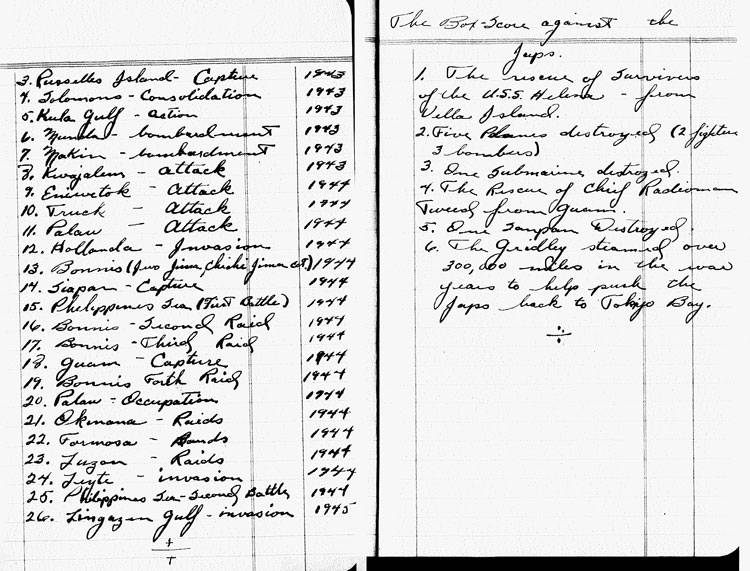 3. Russells Island - Capture 1943
4. Solomons - Consolidation 1943
5. Kula Gulf - action 1943
6. Munda - bombardment 1943
7. Makin - bombardment 1943
8. Kwajalem - attack 1943
9. Eniwetok - Attack 1944
10. Truck - Attack 1944
11. Palau - Attack 1944
12. Hollanda - Invasion 1944
13. Bonnis (Iwo Jima, Chichi Jima ect) 1944
14. Siapan - Capture 1944
15. Philippines Sea (First Battle) 1944
16. Bonnis - Second Raid 1944
17. Bonnis - Third Raid 1944
18. Guam - Capture 1944
19. Bonnis Forth Raid 1944
20. Palau - Occupation 1944
21. Okinana - Raids 1944
22. Formosa - Raids 1944
23. Luzon - Raids 1944
24. Leyte - invasion 1944
25. Philippines Sea - Second Battle 1944
26. Lingazen Gulf - invasion 1945
The Box-Score against the
Japs.
1. The rescue of Survivers
of the U.S.S. Helena - from
Vella Island.
2. Five Planes destroyed (2 fighters
3 bombers)
3. One Submarine destroyed.
4. The Rescue of Chief Radioman
Tweed from Guam.
5. One Sanpan Destroyed.
6. The Gridley steamed over
300,000 miles in the war
years to help push the
Japs back to Tokyo Bay.